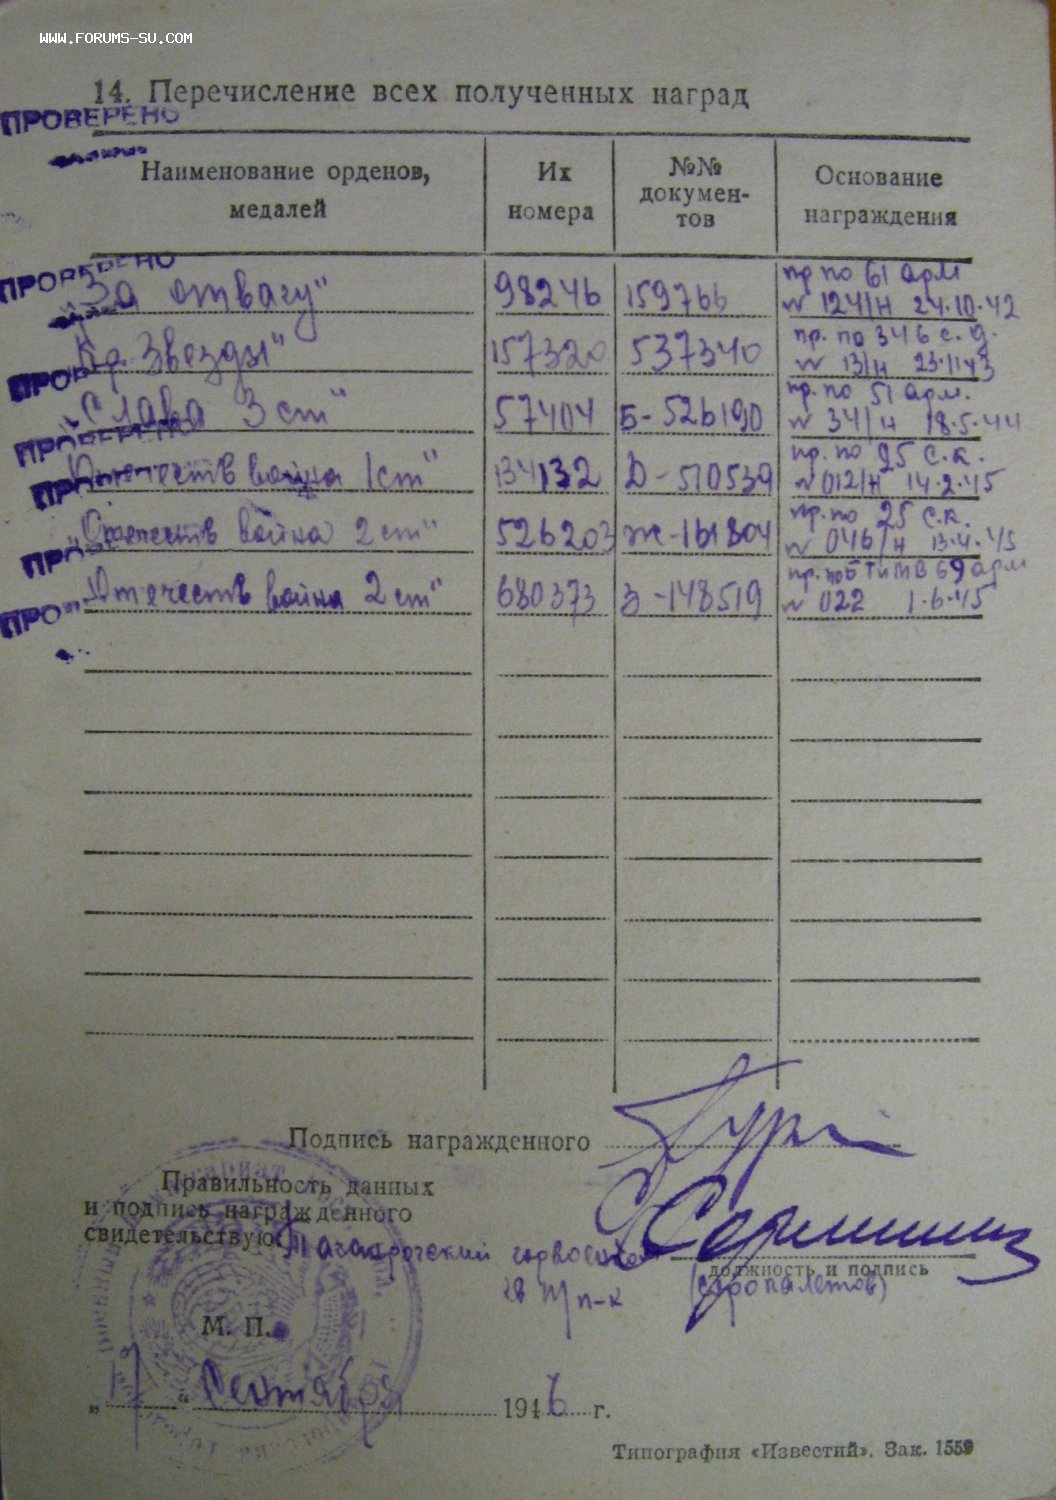 WWW.FORUMS-SU.COM
14. Перечисление всех полученных наград
ПРОВЕРЕНО
Наименование орденов, медалей
Их номера
№№ докумен-тов
Основание награждения
ПРОВЕРЕНО
"За отвагу" 98246 159766 пр. по 61 арм № 124/н 24.10.42
"Кр. Звезды" 157320 537340 пр. по 346 с.д. № 13/н 23.1.43
"Слава 3 ст" 57404 Б-526190 пр. по 51 арм. № 341/н 18.5.44
ПРОВЕРЕНО
"Отечеств война 1 ст" 134132 Д-510539 пр. по 25 с.к. № 012/н 14.2.45
"Отечеств война 2 ст" 526203 Ж-161804 пр. по 25 с.к. № 046/н 13.4.45
"Отечеств война 2 ст" 680373 З-148519 пр. по БТиМВ 69 арм № 022 1.6.45
Подпись награжденного
Правильность данных
и подпись награжденного
свидетельствую: Таганрогский горвоенком
должность и подпись
п/п-к
М. П.
„17“ Сентября 1946 г.
Типография «Известий». Зак. 1559